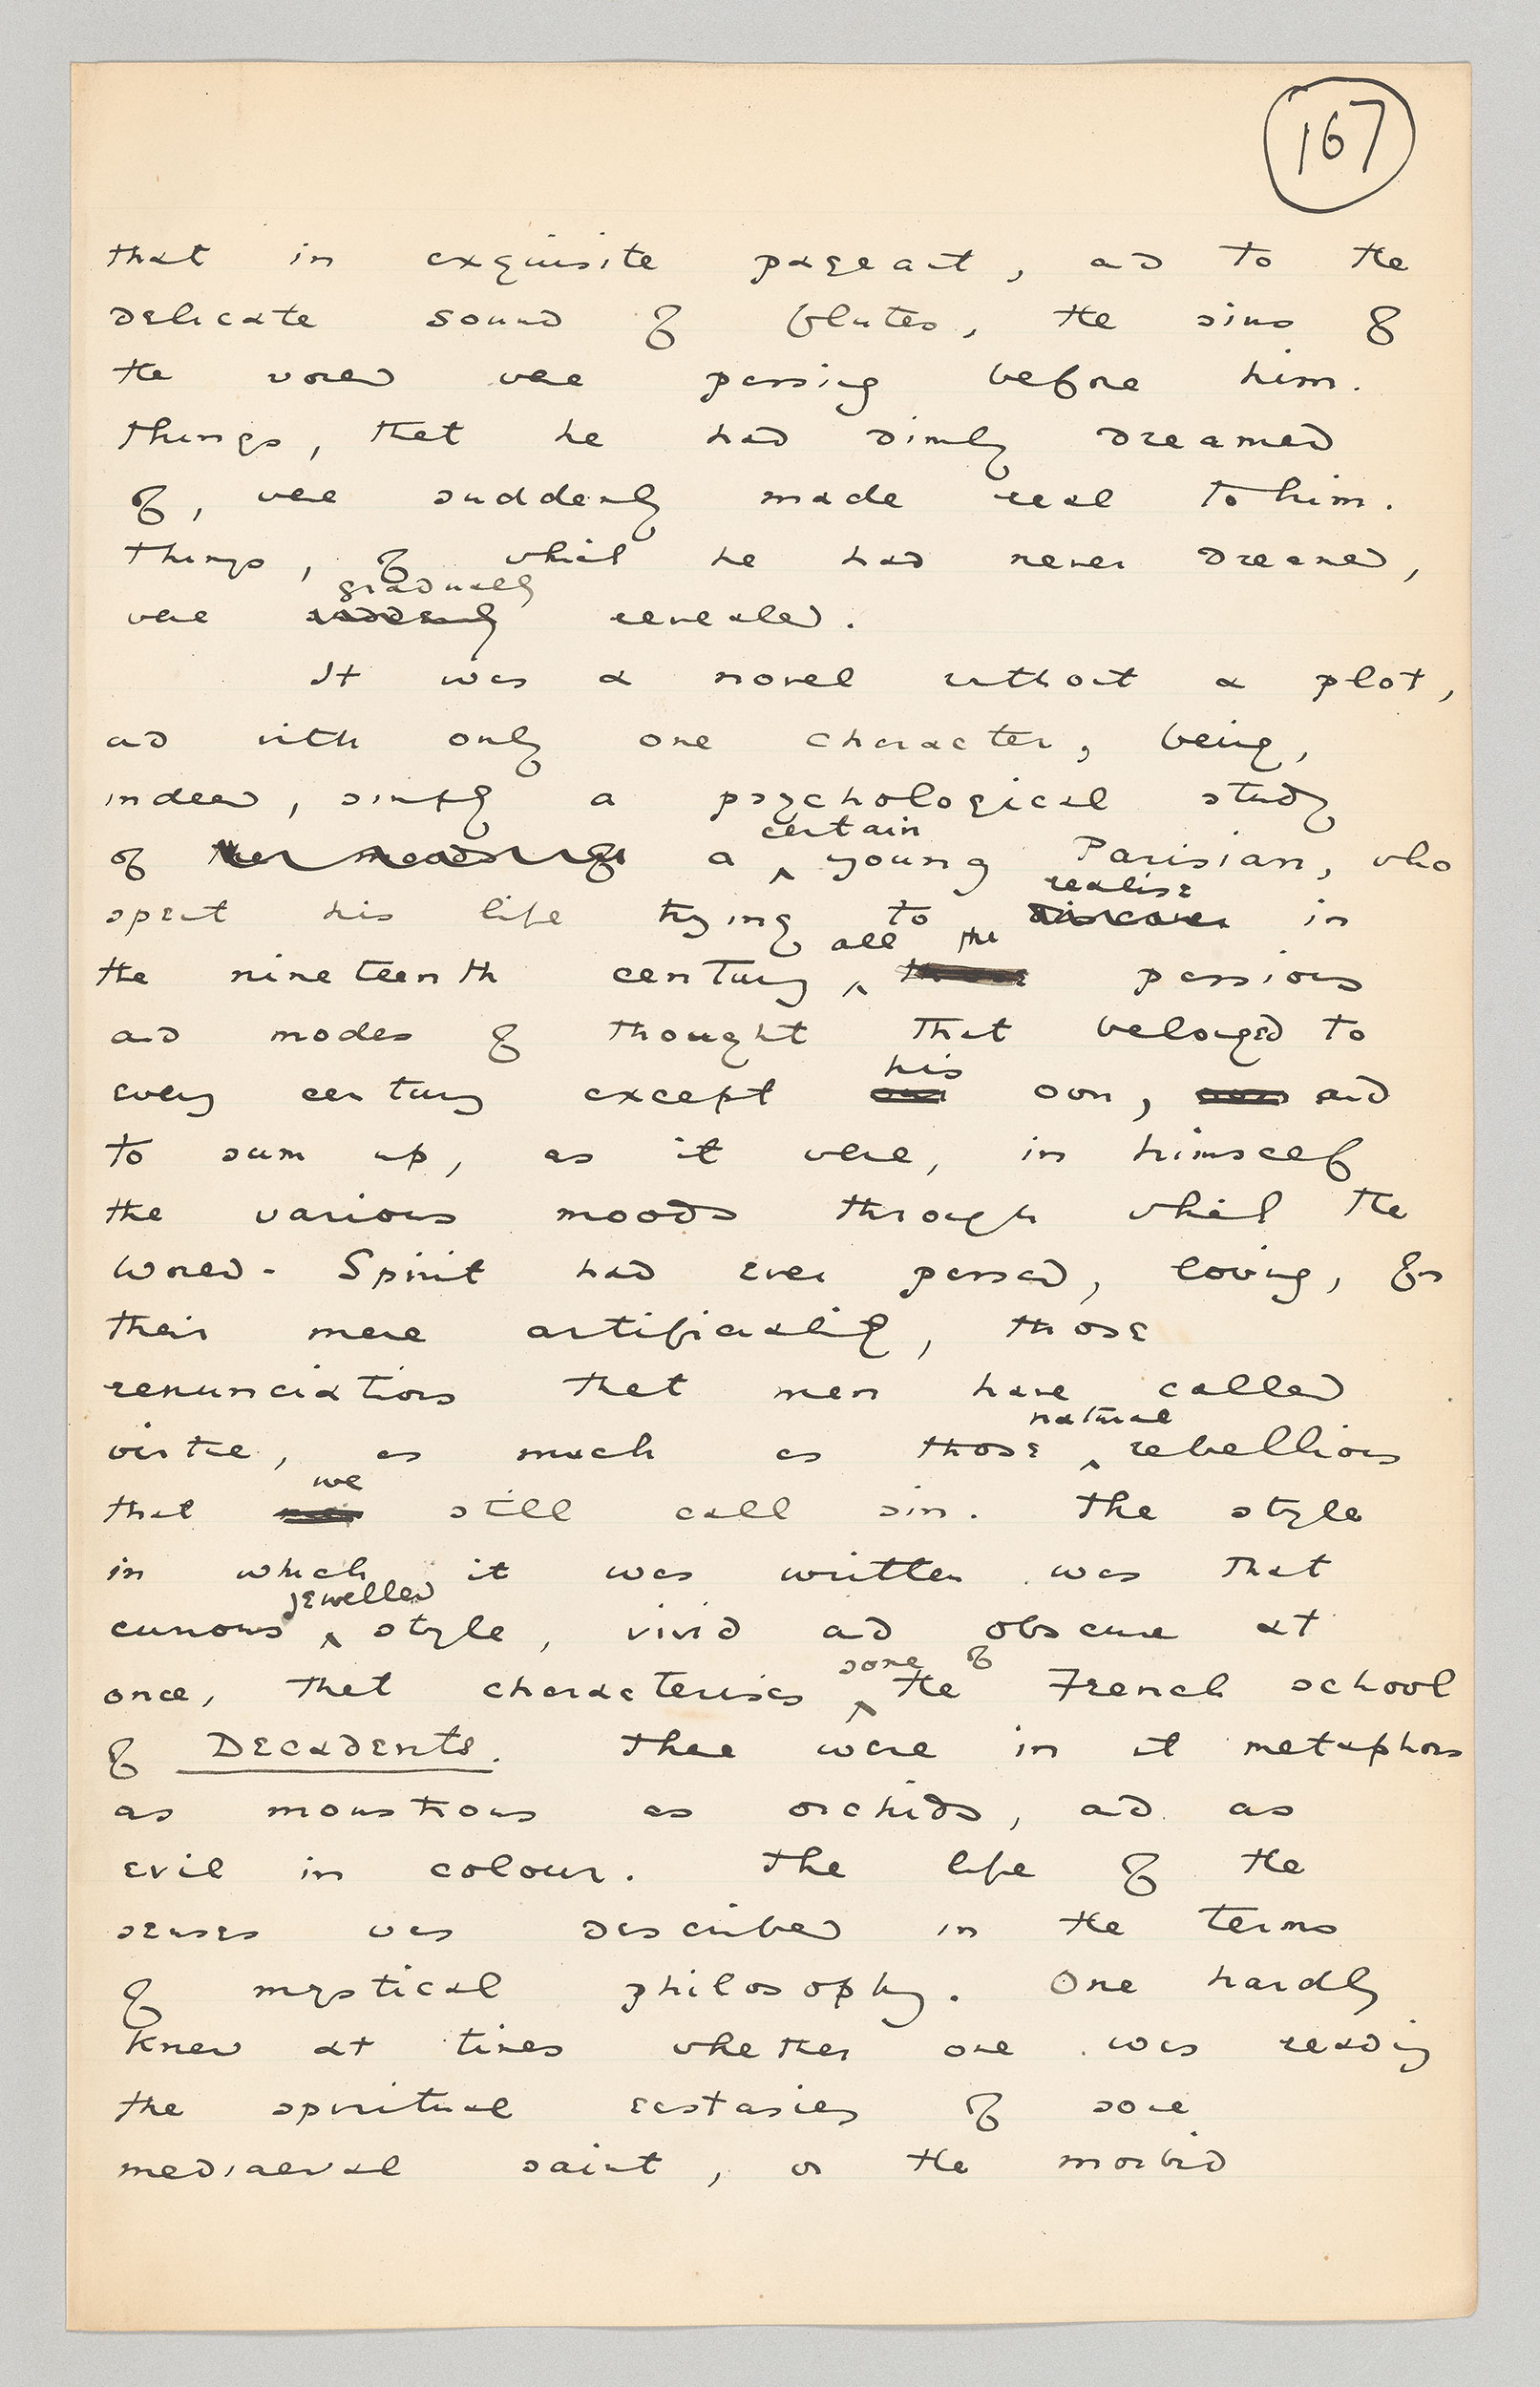 167
that in exquisite pageant, and to the
delicate sound of flutes, the sins of
the world were passing before him.
Things, that he had dimly dreamed
of, were suddenly made real to him.
Things, of which he had never dreamed,
gradually
were suddenly revealed.
It was a novel without a plot,
and with only one character, being,
indeed, simply a psychological study
certain
of a ^ young Parisian, who
realise
spent his life trying to discover in
all the
the nineteenth century ^ passions
and modes of thought that belonged to
his
every century except own, and
to sum up, as it were, in himself
the various moods through which the
World-Spirit had ever passed, loving, for
their mere artificiality, those
renunciations that men have called
natural
virtue, as much as those ^ rebellions
we
that still call sin. The style
in which it was written was that
jewelled
curious ^ style, vivid and obscure at
some of
once, that characterises ^ the French school
of Decadents. There were in it metaphors
as monstrous as orchids, and as
evil in colour. The life of the
senses was described in the terms
of mystical philosophy. One hardly
knew at times whether one was reading
the spiritual ecstasies of some
mediaeval saint, or the morbid